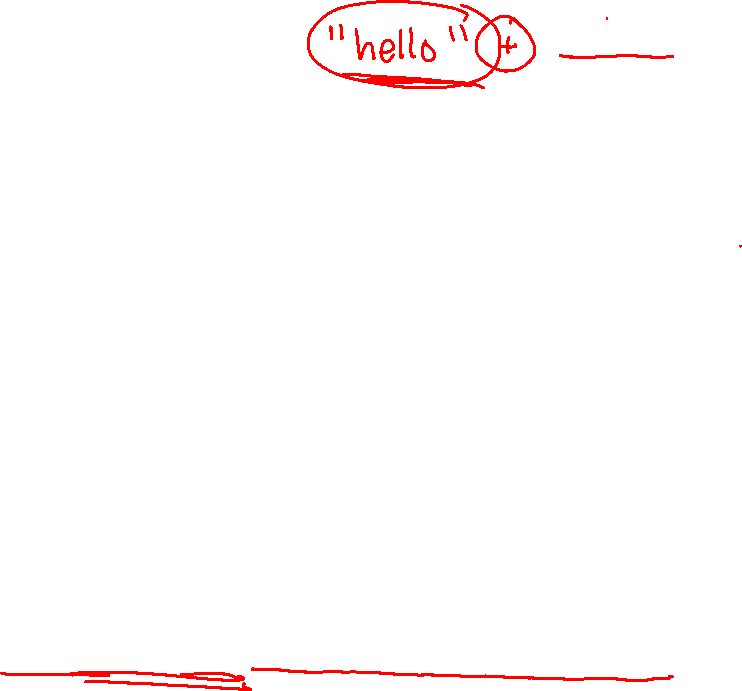 "hello" + ____